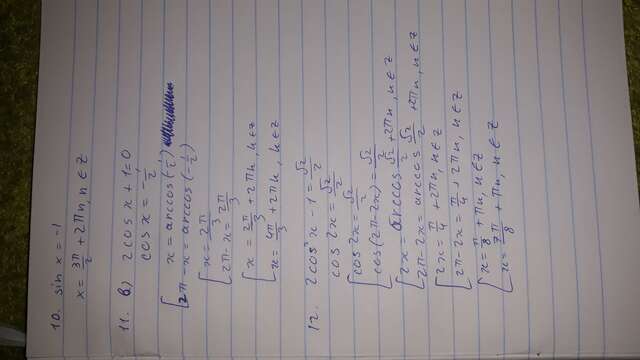 10. sin x = -1
x = 3π/2 + 2πn, n ∈ Z
11. в) 2cos x + 1 = 0
cos x = -1/2
[ x = arccos(-1/2)
[ 2π - x = arccos(-1/2)
[ x = 2π/3
[ 2π - x = 2π/3
[ x = 2π/3 + 2πn, n ∈ Z
[ x = 4π/3 + 2πn, n ∈ Z
12. 2cos²x - 1 = √2/2
cos 2x = √2/2
[ cos 2x = √2/2
[ cos(2π - 2x) = √2/2
[ 2x = arccos √2/2 + 2πn, n ∈ Z
[ 2π - 2x = arccos √2/2 + 2πn, n ∈ Z
[ 2x = π/4 + 2πn, n ∈ Z
[ 2π - 2x = π/4 + 2πn, n ∈ Z
[ x = π/8 + πn, n ∈ Z
[ x = 7π/8 + πn, n ∈ Z